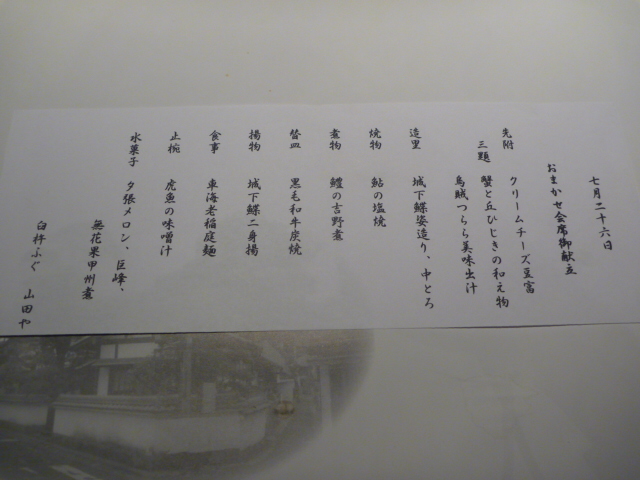 七月二十六日
おまかせ会席御献立
先附 クリームチーズ豆富
三題 蟹と丘ひじきの和え物
烏賊つらら美味出汁
造里 城下鰈姿造り、中とろ
焼物 鮎の塩焼
煮物 鱧の吉野煮
替皿 黒毛和牛炭焼
揚物 城下鰈二身揚
食事 車海老稲庭麺
止椀 虎魚の味噌汁
水菓子 夕張メロン、巨峰、
無花果甲州煮
臼杵ふぐ 山田や